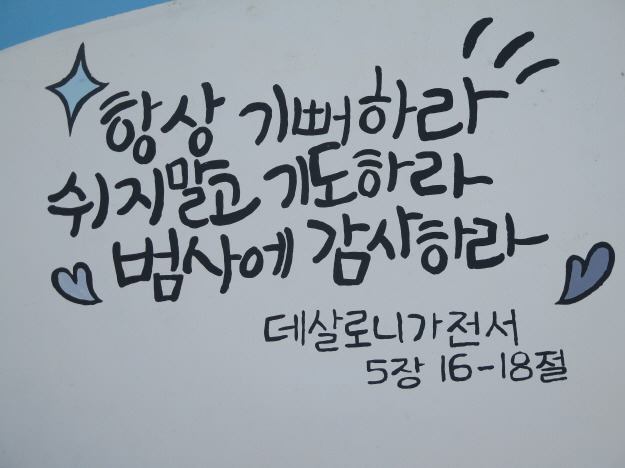 항상 기뻐하라
쉬지말고 기도하라
범사에 감사하라
데살로니가전서
5장 16-18절